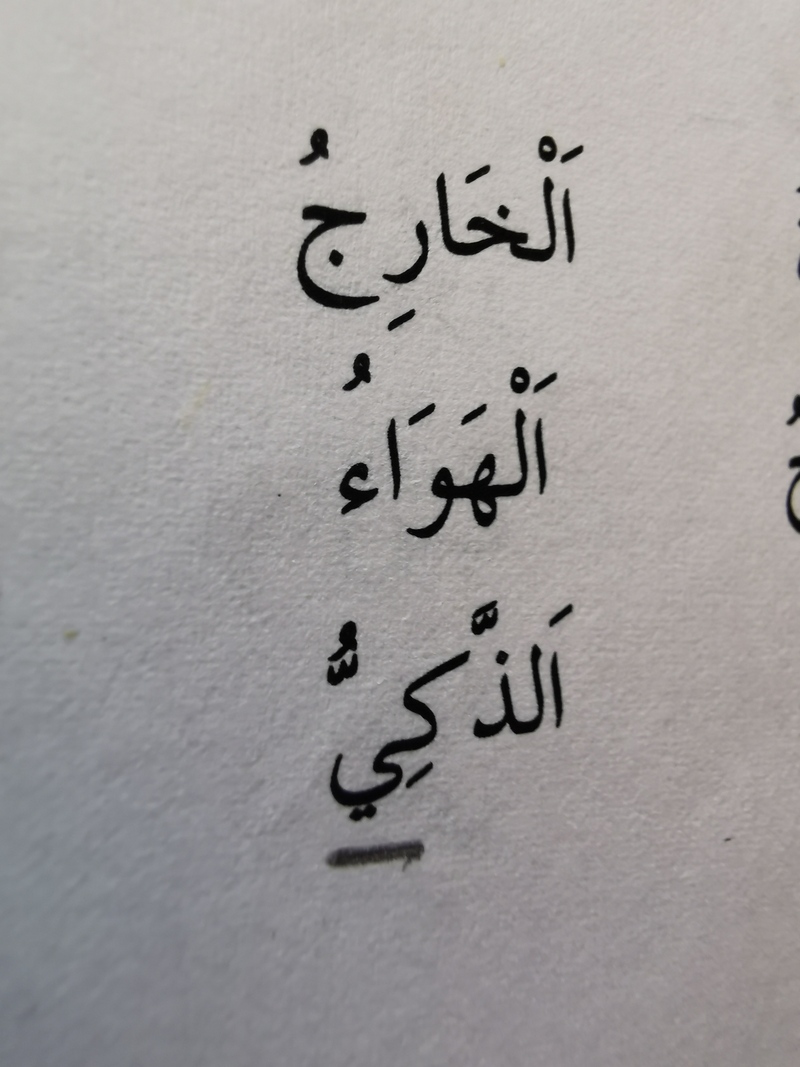 اَلْخَارِجُ
اَلْهَوَاءُ
اَلذَّكِيُّ